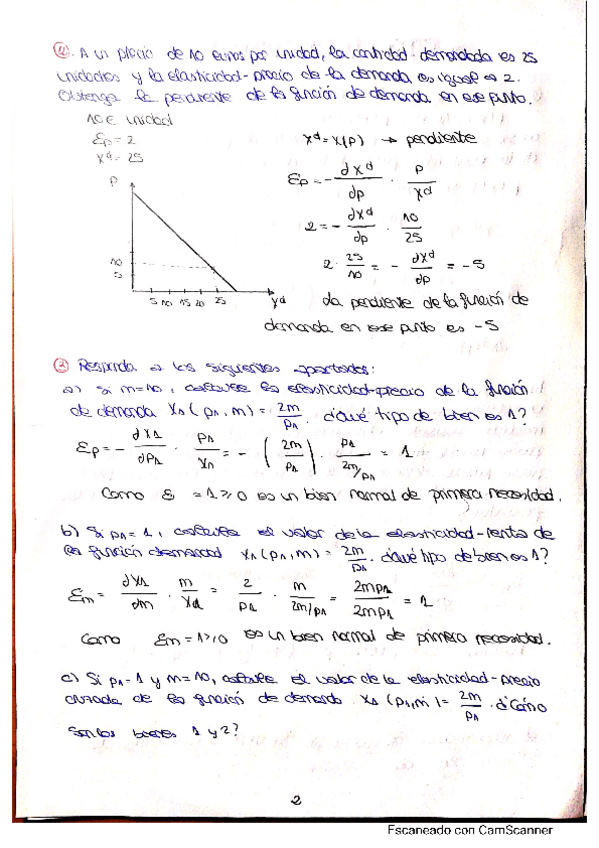 ② A un precio de 10 euros por unidad, la cantidad demandada es 25
unidades y la elasticidad-precio de la demanda es igual a 2.
Obtenga la pendiente de la función de demanda en ese punto.
10€ unidad
Ep = 2
Xd = 25
xd = x(p) → pendiente
Ep = - ∂xd/∂p · p/xd
2 = - ∂xd/∂p · 10/25
2 · 25/10 = - ∂xd/∂p = -5
P
10
5
5 10 15 20 25 xd
La pendiente de la función de
demanda en ese punto es -5
③ Responda a los siguientes apartados:
a) Si m=10, calcule la elasticidad-precio de la función
de demanda x1 (p1, m) = 2m/p1. ¿Qué tipo de bien es 1?
Ep = - ∂x1/∂p1 · p1/x1 = - (2m/p1) · p1/2m/p1 = 1
Como E = 1 ≥ 0 es un bien normal de primera necesidad.
b) Si p1 = 1, calcule el valor de la elasticidad-renta de
la función demanda x1 (p1, m) = 2m/p1. ¿Qué tipo de bien es 1?
Em = ∂x1/∂m · m/xd = 2/p1 · m/2m/p1 = 2mp1/2mp1 = 1
Como Em = 1 > 0 es un bien normal de primera necesidad.
c) Si p1 = 1 y m = 10, calcule el valor de la elasticidad-precio
cruzada de la función de demanda x1 (p1, m) = 2m/p1. ¿Cómo
son los bienes 1 y 2?
2
Escaneado con CamScanner